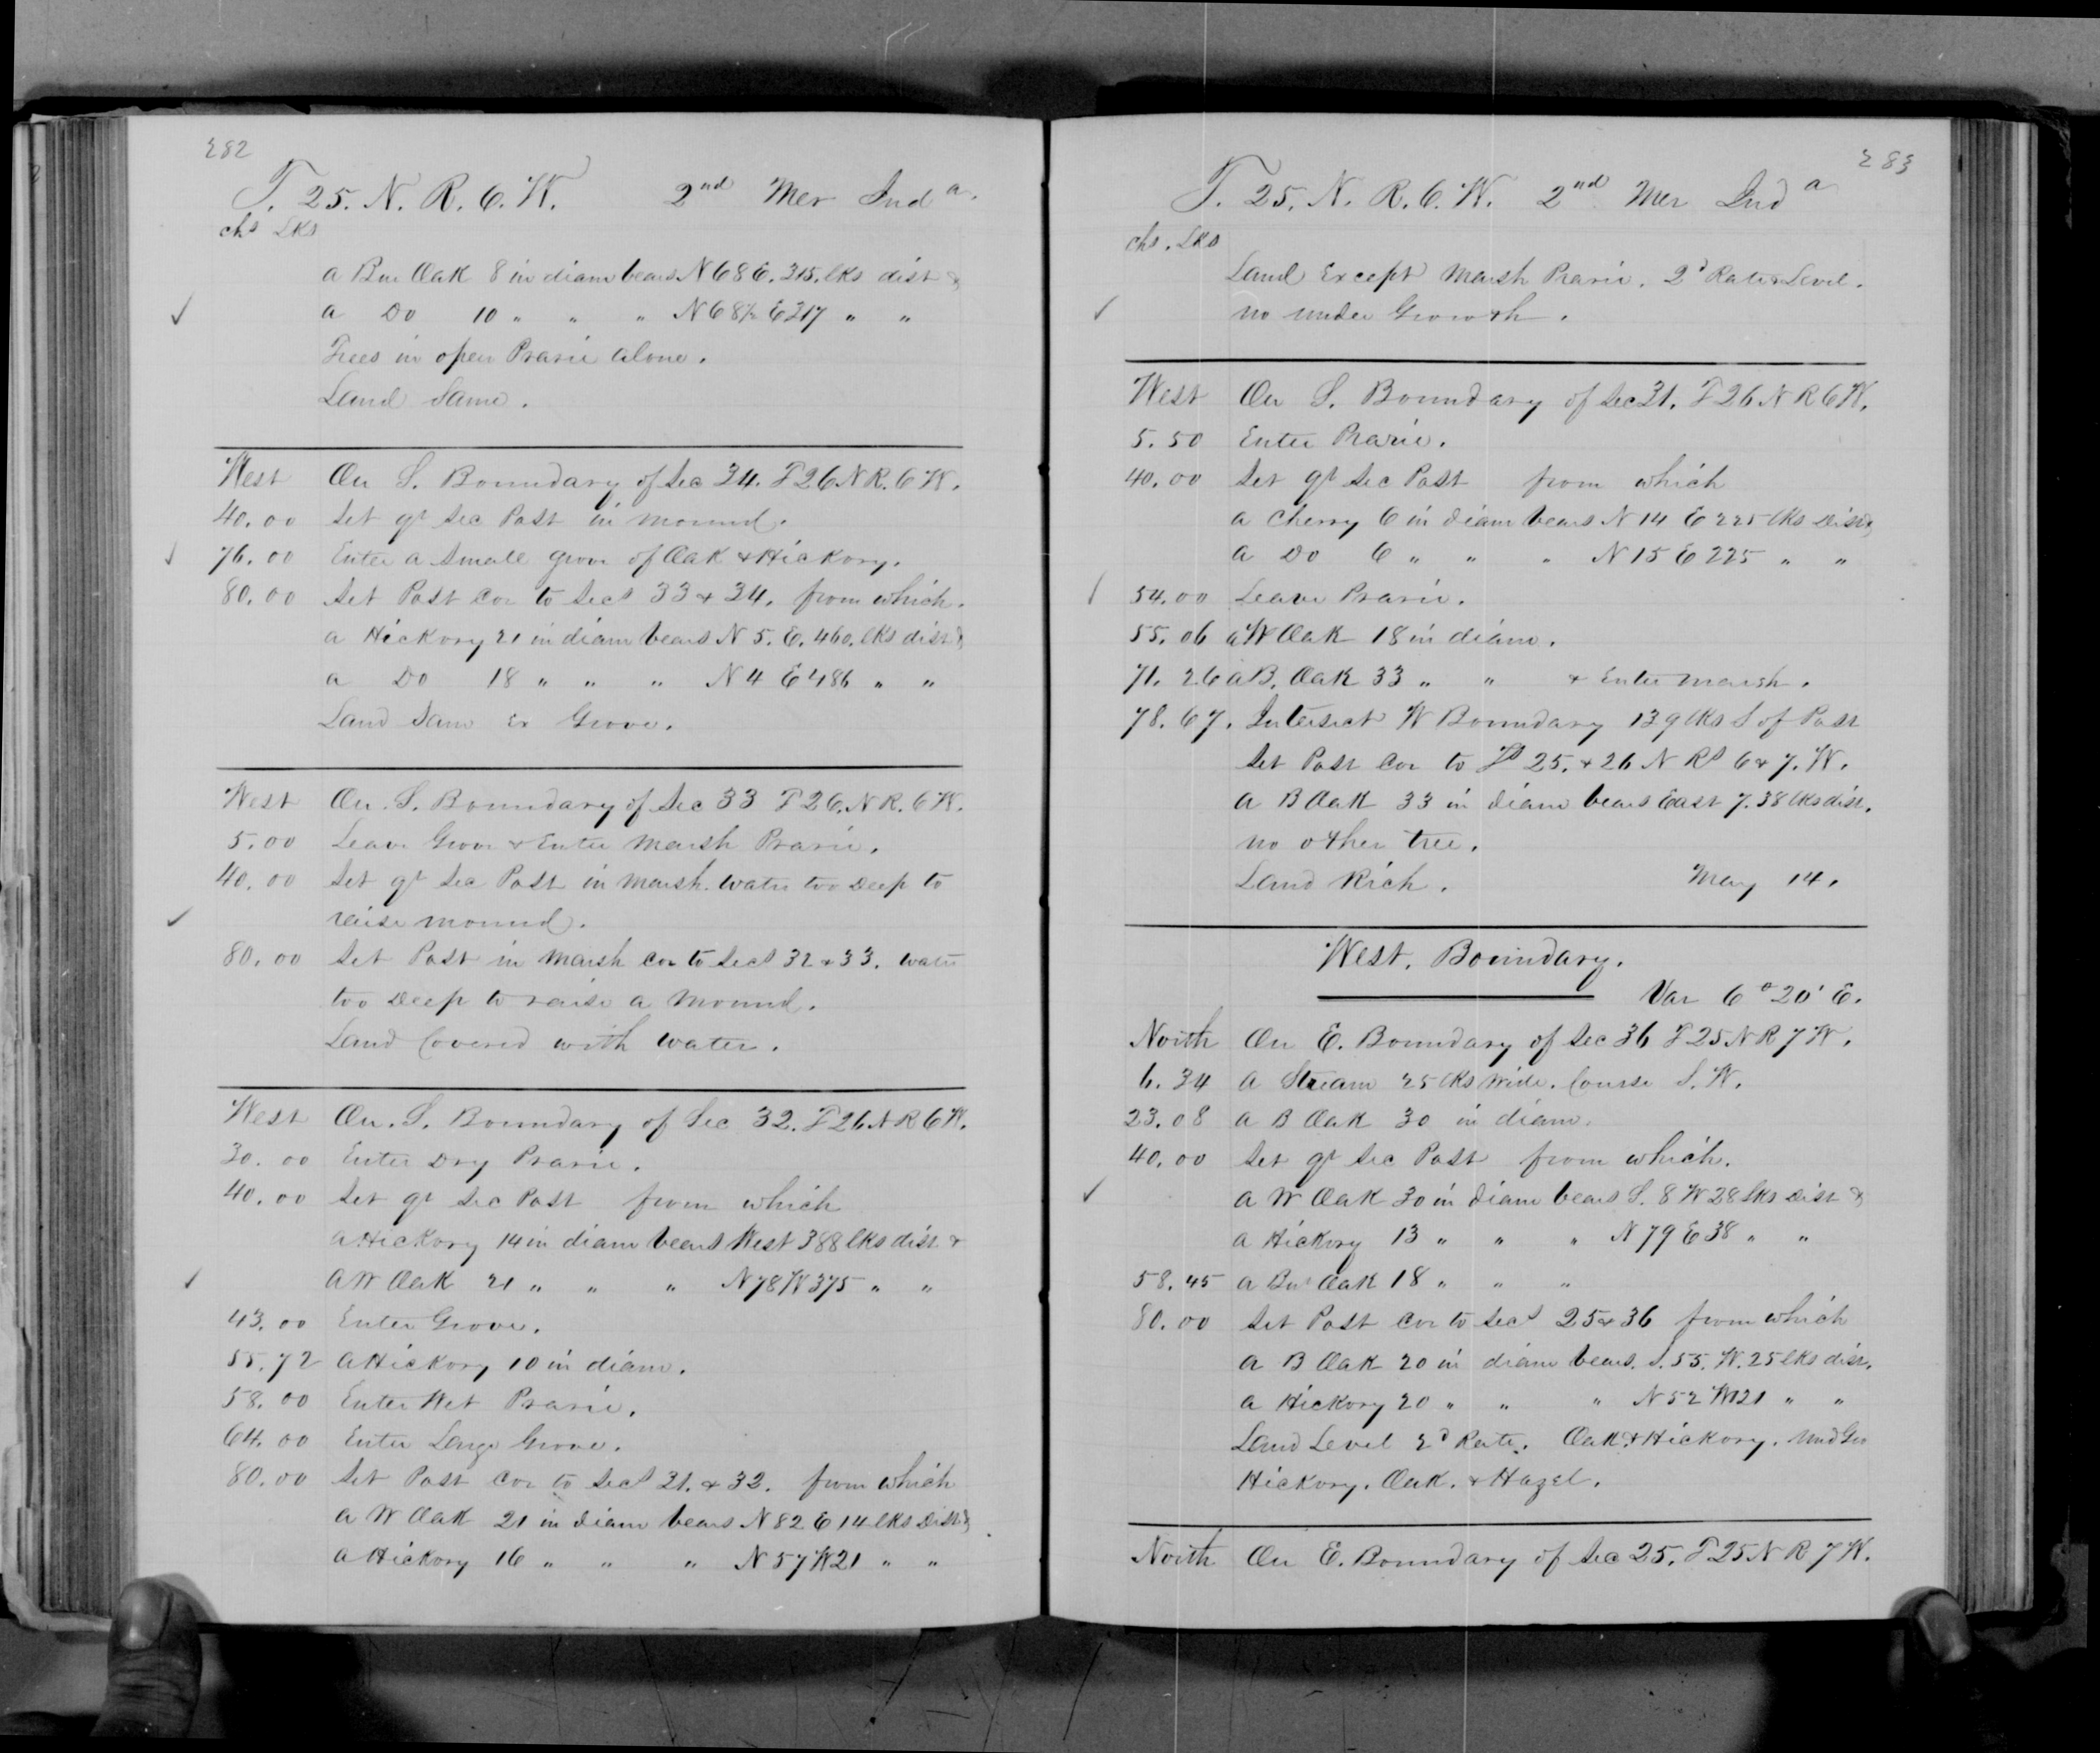 282
T. 25. N. R. 6. W. 2nd Mer Inda.
chs Lks
a Bur Oak 8 in diam bears N 68 E. 315. lks dist &
a Do 10 " " " N 68½ E 317 " "
Trees in open Prarie alone.
Land Same.
West On S. Boundary of Sec 34. T 26 N R. 6 W.
40.00 Set qr Sec Post in mound.
76.00 Enter a Small grove of Oak & Hickory.
80.00 Set Post Cor to Secs 33 & 34. from which.
a Hickory 21 in diam bears N 5. E. 460. lks dist &
a Do 18 " " " N 4 E 486 " "
Land Sam Ex Grove.
West On. S. Boundary of Sec 33 T 26. N R. 6 W.
5.00 Leave Grove & Enter Marsh Prarie.
40.00 Set qr Sec Post in Marsh. Water too Deep to
raise mound.
80.00 Set Post in Marsh cor to Secs 32 & 33. water
too Deep to raise a Mound.
Land Covered with water.
West On. S. Boundary of Sec 32. T 26 N R 6 W.
30.00 Enter Dry Prarie.
40.00 Set qr Sec Post from which
a Hickory 14 in diam bears West 388 lks dist &
a W Oak 21 " " " N 78 W 375 " "
43.00 Enter Grove.
55.72 a Hickory 10 in diam.
58.00 Enter Wet Prarie.
64.00 Enter Large Grove.
80.00 Set Post Cor to Secs 31. & 32. from which
a W Oak 21 in diam bears N 82 E 14 lks Dist &
a Hickory 16 " " " N 57 W 21 " "
283
T. 25. N. R. 6. W. 2nd Mer Inda
chs. Lks
Land Except Marsh Prarie. 2d Rate & Level.
no under Growth.
West On S. Boundary of Sec 31. T 26 N R 6 W.
5.50 Enter Prarie.
40.00 Set qr Sec Post from which
a Cherry 6 in diam bears N 14 E 225 lks Dist &
a Do 6 " " " N 15 E 225 " "
54.00 Leave Prarie.
55.06 a W Oak 18 in diam.
71.26 a B. Oak 33 " " & Enter Marsh.
78.67. Intersect W Boundary 139 lks S of Post
Set Post Cor to Ts 25. & 26 N Rs 6 & 7. W.
a B Oak 33 in diam bears East 7.38 lks dist.
no other tree.
Land Rich. May 14.
West. Boundary.
Var 6° 20' E.
North On E. Boundary of Sec 36 T 25 N R 7 W.
6.34 a Stream 25 lks wide. Course S. W.
23.08 a B Oak 30 in diam.
40.00 Set qr Sec Post from which.
a W Oak 30 in diam bears S. 8 W 28 lks Dist &
a Hickory 13 " " " N 79 E 38 " "
58.45 a Bur Oak 18 " " "
80.00 Set Post Cor to Secs 25 & 36 from which
a B Oak 20 in diam bears. S. 55. W. 25 lks dist.
a Hickory 20 " " " N 52 W 121 " "
Land Level 2d Rate. Oak & Hickory. Und Gro
Hickory. Oak. & Hazel.
North On E. Boundary of Sec 25. T 25 N R 7 W.